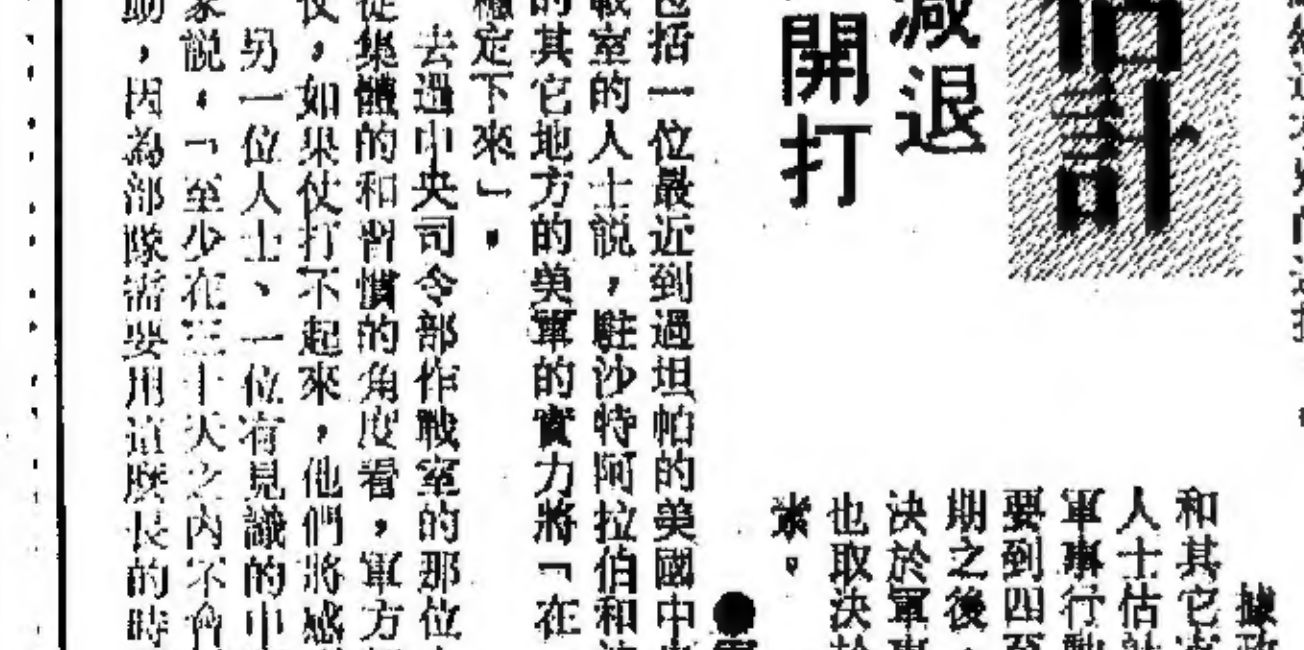 估計
減退
開打
據政
和其它
人士估計
軍事行動
要到四至
期之後，
決於軍事
也取決於
素。
●軍
包括一位最近到過坦帕的美國中央
戰室的人士說，駐沙特阿拉伯和
的其它地方的美軍的實力將「在
穩定下來」。
去過中央司令部作戰室的那位
從集體的和習慣的角度看，軍方
仗，如果仗打不起來，他們將感
另一位人士、一位有見識的中
家說，「至少在三十天之內不會
動，因為部隊需要用這麼長的時